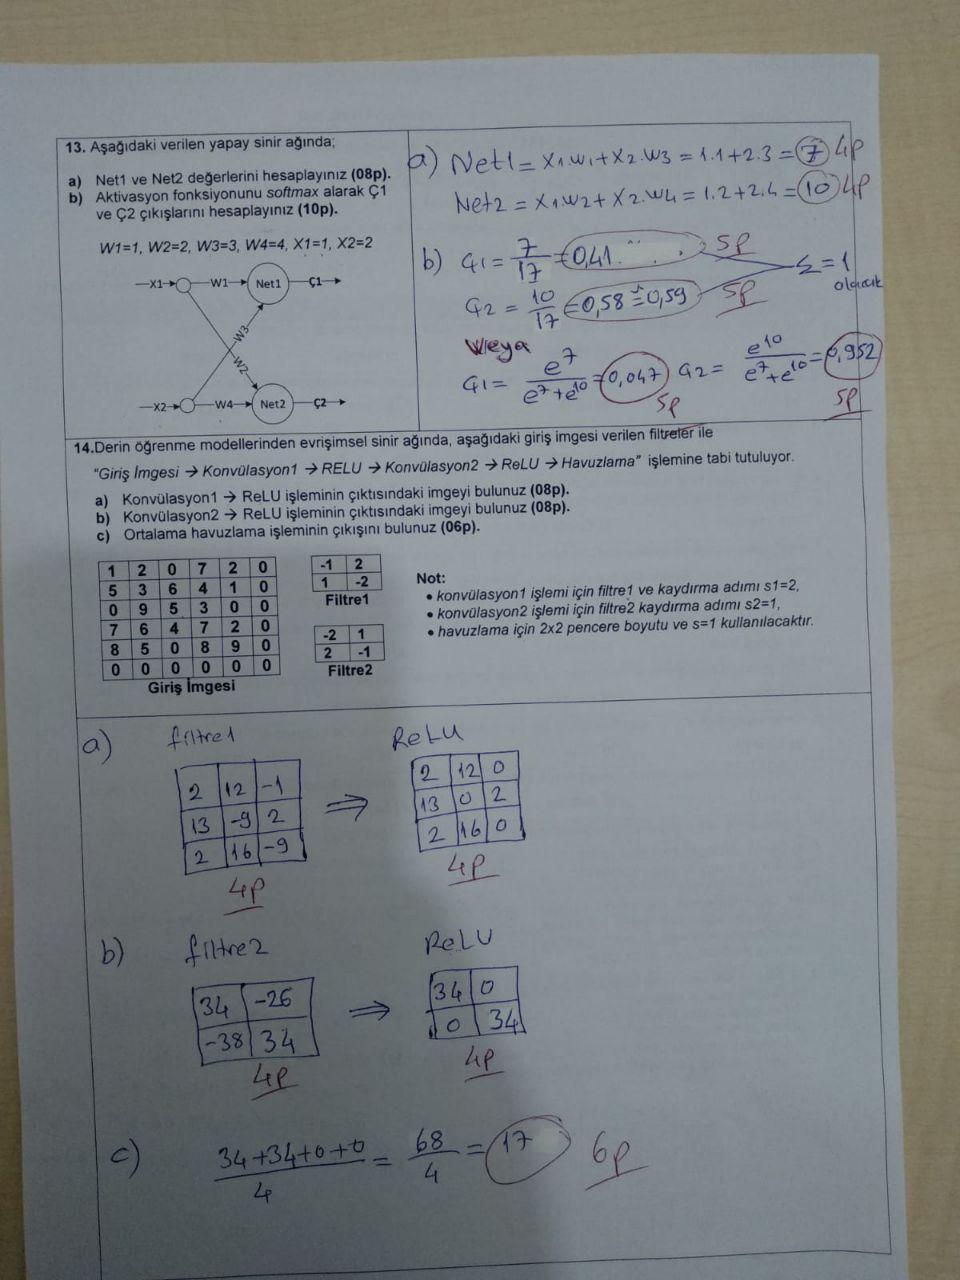 13. Aşağıdaki verilen yapay sinir ağında;
a) Net1 ve Net2 değerlerini hesaplayınız (08p).
b) Aktivasyon fonksiyonunu softmax alarak Ç1
ve Ç2 çıkışlarını hesaplayınız (10p).
W1=1, W2=2, W3=3, W4=4, X1=1, X2=2
X1 W1 Net1 Ç1
W3
W2
X2 W4 Net2 Ç2
a) Net1 = X1.W1 + X2.W3 = 1.1 + 2.3 = 7 4p
Net2 = X1.W2 + X2.W4 = 1.2 + 2.4 = 10 4p
b) Ç1 = 7/17 = 0,41 5p
Ç2 = 10/17 = 0,58 ≅ 0,59 5p
Σ = 1
olacak
Veya
Ç1 = e^7/(e^7+e^10) = 0,047 5p Ç2 = e^10/(e^7+e^10) = 0,952 5p
14.Derin öğrenme modellerinden evrişimsel sinir ağında, aşağıdaki giriş imgesi verilen filtreler ile
"Giriş İmgesi → Konvülasyon1 → RELU → Konvülasyon2 → ReLU → Havuzlama" işlemine tabi tutuluyor.
a) Konvülasyon1 → ReLU işleminin çıktısındaki imgeyi bulunuz (08p).
b) Konvülasyon2 → ReLU işleminin çıktısındaki imgeyi bulunuz (08p).
c) Ortalama havuzlama işleminin çıkışını bulunuz (06p).
1 2 0 7 2 0
5 3 6 4 1 0
0 9 5 3 0 0
7 6 4 7 2 0
8 5 0 8 9 0
0 0 0 0 0 0
Giriş İmgesi
-1 2
1 -2
Filtre1
-2 1
2 -1
Filtre2
Not:
• konvülasyon1 işlemi için filtre1 ve kaydırma adımı s1=2,
• konvülasyon2 işlemi için filtre2 kaydırma adımı s2=1,
• havuzlama için 2x2 pencere boyutu ve s=1 kullanılacaktır.
a) filtre1
2 12 -1
13 -9 2
2 16 -9
4p
⇒
ReLU
2 12 0
13 0 2
2 16 0
4p
b) filtre2
34 -26
-38 34
4p
⇒
ReLU
34 0
0 34
4p
c) (34+34+0+0)/4 = 68/4 = 17 6p